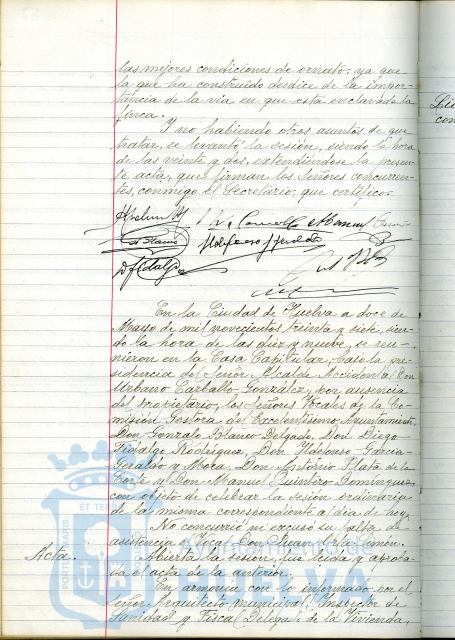 las mejores condiciones de ornato; ya que
la que ha construido desdice de la impor-
tancia de la via en que está enclavada la
finca.
Y no habiendo otros asuntos de que
tratar, se levantó la sesión, siendo la hora
de las veinte y dos, extendiéndose la presen-
te acta, que firman los Señores concurren-
tes, conmigo el Secretario, que certifico.
D Fidalgo
En la Ciudad de Huelva a doce de
Mayo de mil novecientos treinta y siete, sien-
do la hora de las diez y nueve, se reu-
nieron en la Casa Capitular, bajo la pre-
sidencia del Señor Alcalde Accidental Don
Urbano Carballo González, por ausencia
del propietario, los Señores Vocales de la Co-
misión Gestora del Excelentísimo Ayuntamiento,
Don Gonzalo Blanco Delgado, Don Diego
Fidalgo Rodríguez, Don Ildefonso García-
Geraldo y Mora, Don Antonio Plata de la
Corte y Don Manuel Quintero Domínguez,
con objeto de celebrar la sesión ordinaria
de la misma correspondiente al día de hoy.
No concurrió ni excusó su falta de
asistencia el Vocal Don Juan Mata Limón.
Acta. Abierta la sesión, fué leida y aproba-
da el acta de la anterior.
En armonía con lo informado por el
Señor Arquitecto municipal, Inspector de
Sanidad y Fiscal Delegado de la Vivienda,
Ayuntamiento de
HUELVA